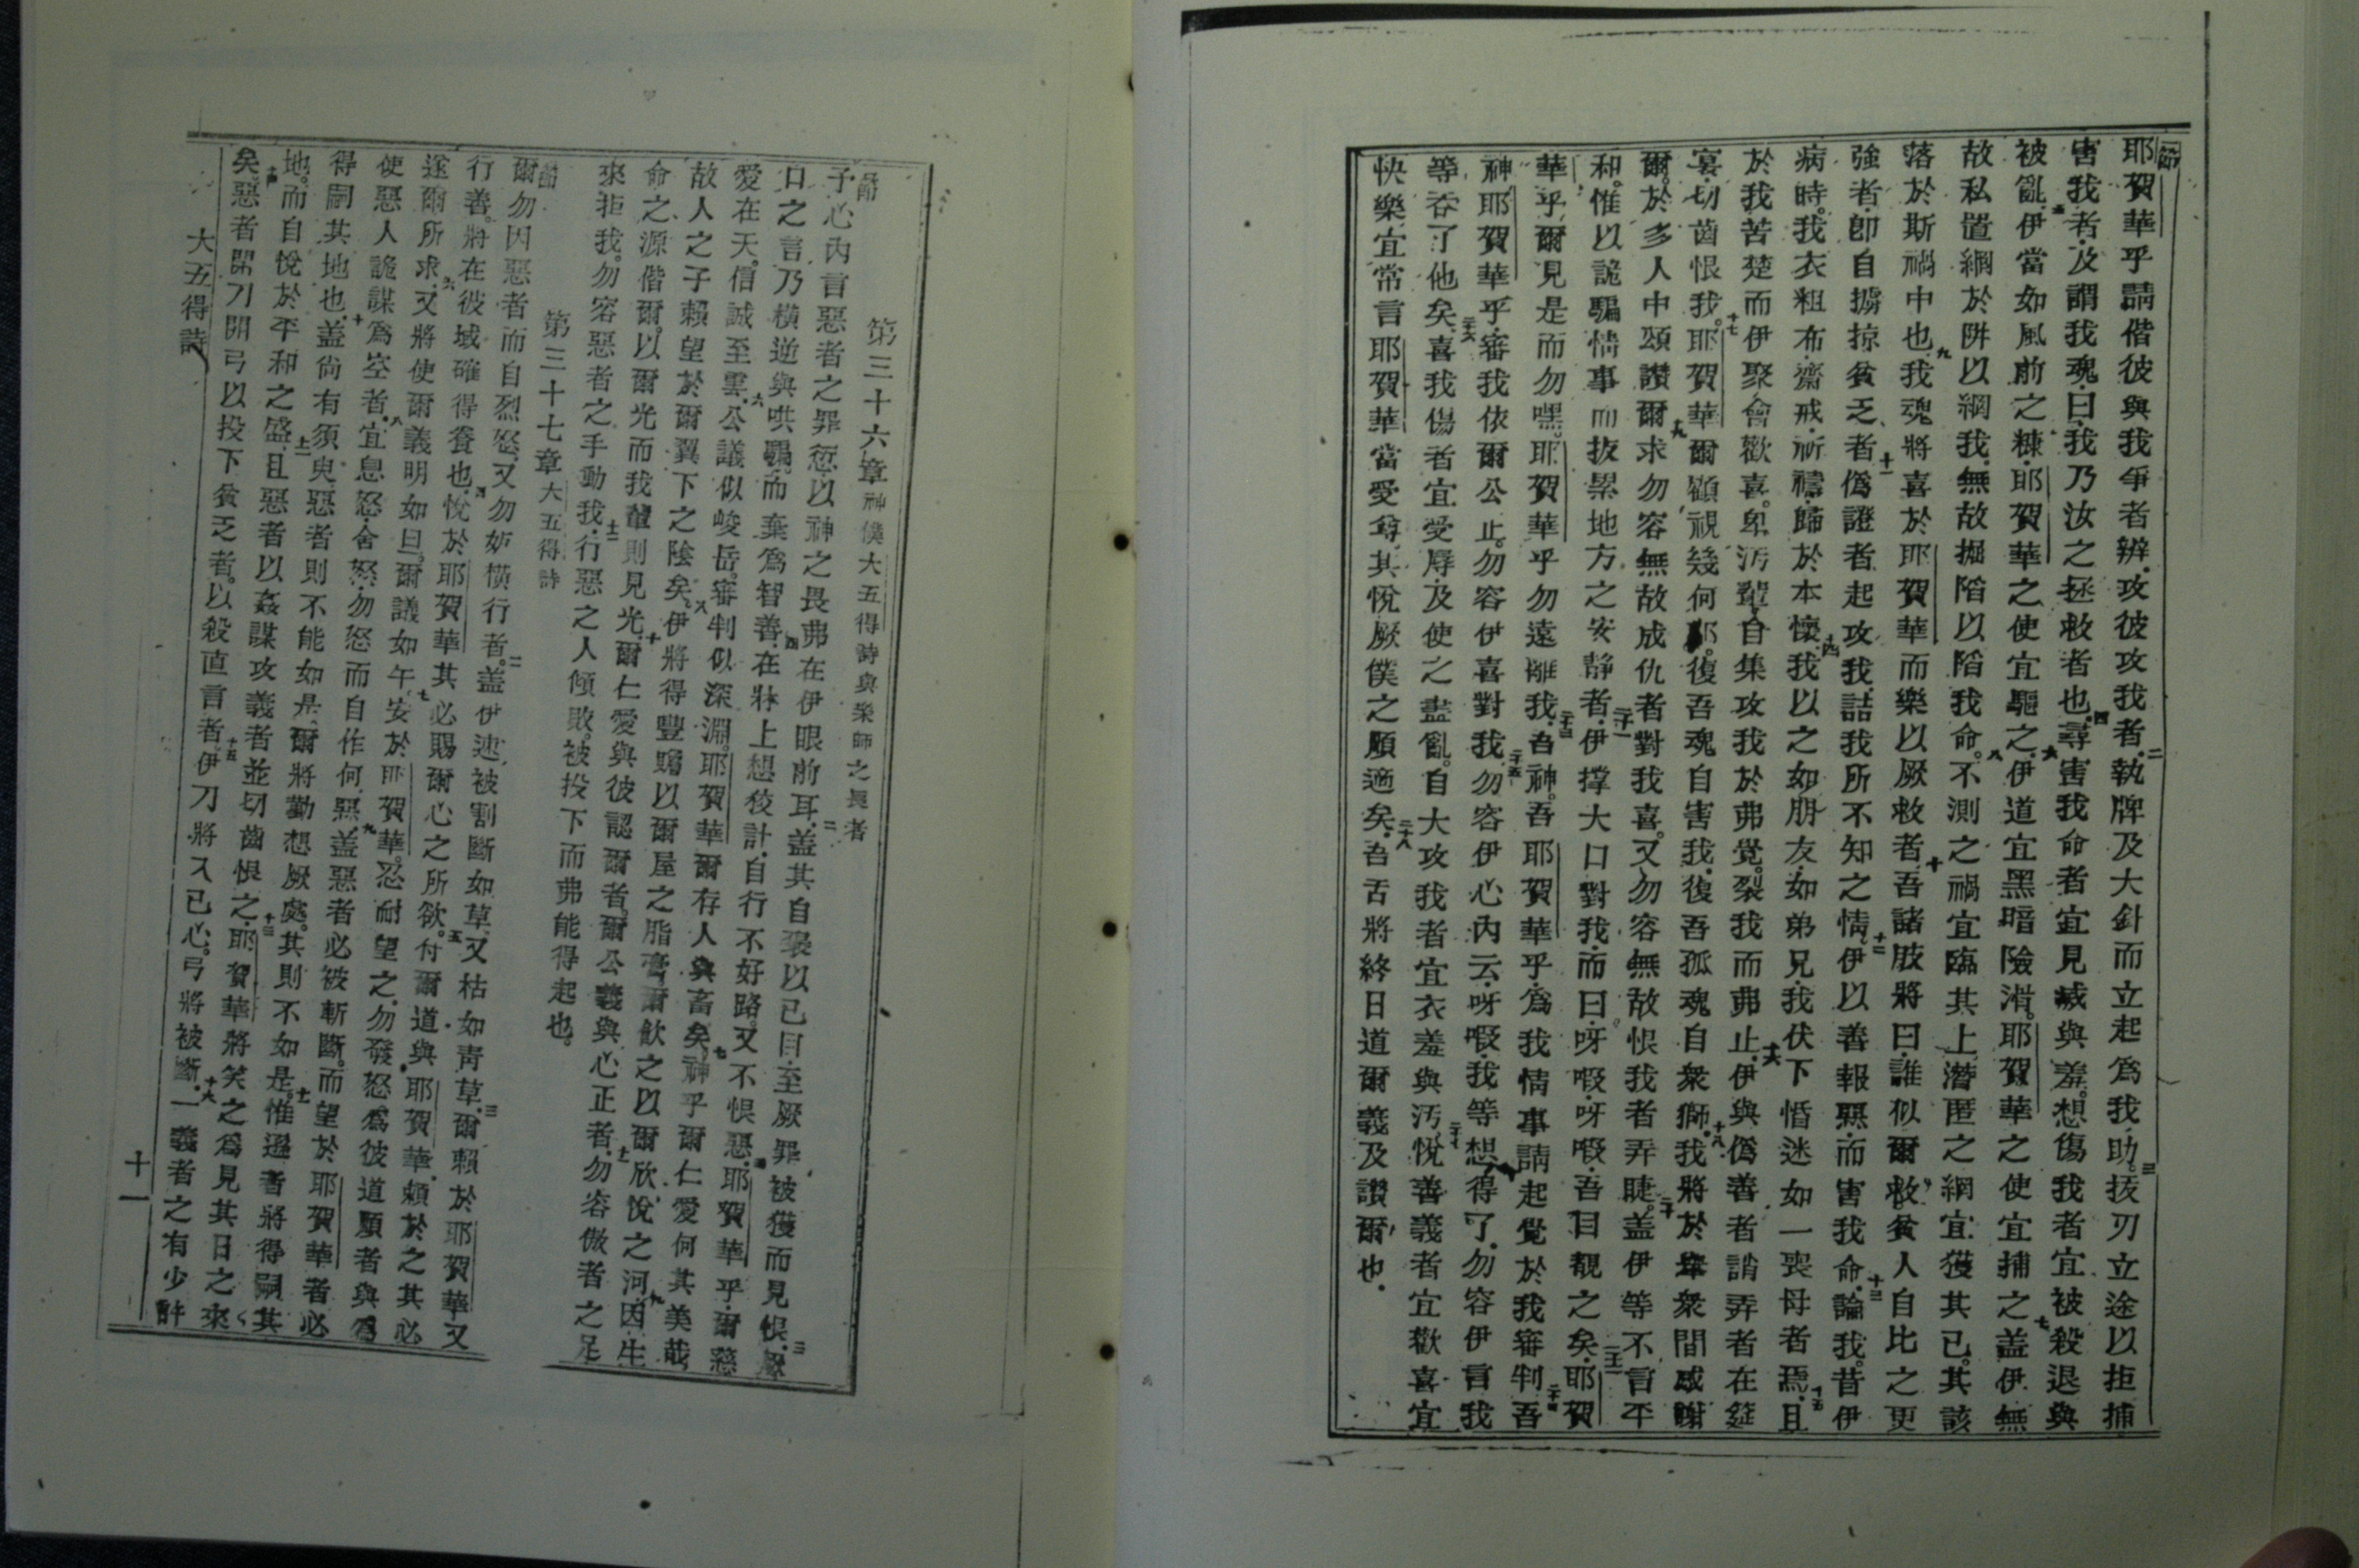 節
耶賀華乎請偕彼與我爭者辨攻彼攻我者二執牌及大針而立起為我助三拔刃立途以拒捕
害我者及謂我魂曰我乃汝之拯救者也四尋害我命者宜見烕與羞想傷我者宜被殺退與
被亂五伊當如風前之糠耶賀華之使宜驅之六伊道宜黑暗險滑耶賀華之使宜捕之七盖伊無
故私置綱於阱以綱我無故掘陷以陷我命八不測之禍宜臨其上潛匿之綱宜獲其已其該
落於斯禍中也九我魂將喜於耶賀華而樂以厥救者十吾諸肢將曰誰似爾救貧人自比之更
強者卽自擄掠貧乏者十一偽證者起攻我詰我所不知之情十二伊以善報惡而害我命十三論我昔伊
病時我衣粗布齋戒祈禱歸於本懷十四我以之如朋友如弟兄我伏下惛迷如一喪母者焉十五且
於我苦楚而伊聚會歡喜卑污輩自集攻我於弗覺裂我而弗止十六伊與偽善者誚弄者在筵
宴切齒恨我十七耶賀華爾顧視幾何耶復吾魂自害我復吾孤魂自衆獅十八我將於衆間感謝
爾於多人中頌讚爾十九求勿容無故成仇者對我喜又勿容無故恨我者弄睫二十盖伊等不言平
和惟以詭騙情事而拔累地方之安靜者二十一伊撑大口對我而曰呀嘏呀嘏吾目覩之矣二十二耶賀
華乎爾見是而勿嘿耶賀華乎勿遠離我二十三吾神吾耶賀華乎為我情事請起覺於我審判二十四吾
神耶賀華乎審我依爾公止勿容伊喜對我二十五勿容伊心內云呀嘏我等想得了勿容伊言我
等吞了他矣二十六喜我傷者宜受辱及使之盡亂自大攻我者宜衣羞與污二十七悅善義者宜歡喜宜
快樂宜常言耶賀華當受尊其悅厥僕之順適矣二十八吾舌將終日道爾義及讚爾也
第三十六章神僕大五得詩與樂師之長者
節
子心內言惡者之罪愆以神之畏弗在伊眼前耳二盖其自褒以已目至厥罪被獲而見恨三厥
口之言乃橫逆與哄騙而棄為智善四在牀上想狡計自行不好路又不恨惡五耶賀華乎爾慈
愛在天信誠至雲六公議似峻岳審判似深淵耶賀華爾存人與畜矣七神乎爾仁愛何其美哉
故人之子賴望於爾翼下之陰矣八伊將得豐贍以爾屋之脂膏爾飲之以爾欣悅之河九因生
命之源偕爾以爾光而我輩則見光十爾仁愛與彼認爾者爾公義與心正者十一勿容傲者之足
來拒我勿容惡者之手動我十二行惡之人傾敗被投下而弗能得起也
第三十七章大五得詩
節
爾勿因惡者而自烈怒又勿妒橫行者二盖伊速被割斷如草又枯如靑草三爾賴於耶賀華又
行善將在彼域確得養也四悅於耶賀華其必賜爾心之所欲五付爾道與耶賀華賴於之其必
遂爾所求六又將使爾義明如旦爾議如午七安於耶賀華忍耐望之勿發怒為彼道順者與為
使惡人詭謀為空者八宜息怒舍怒勿怒而自作何惡九盖惡者必被斬斷而望於耶賀華者必
得嗣其地也十盖尚有須臾惡者則不能如是爾將勤想厥處其則不如是十一惟遜者將得嗣其
地而自悅於平和之盛十二且惡者以姦謀攻義者並切齒恨之十三耶賀華將笑之為見其日之來
矣十四惡者開刀開弓以投下貧乏者以殺直言者十五伊刀將入已心弓將被斷十六一義者之有少許
大五得詩
十一